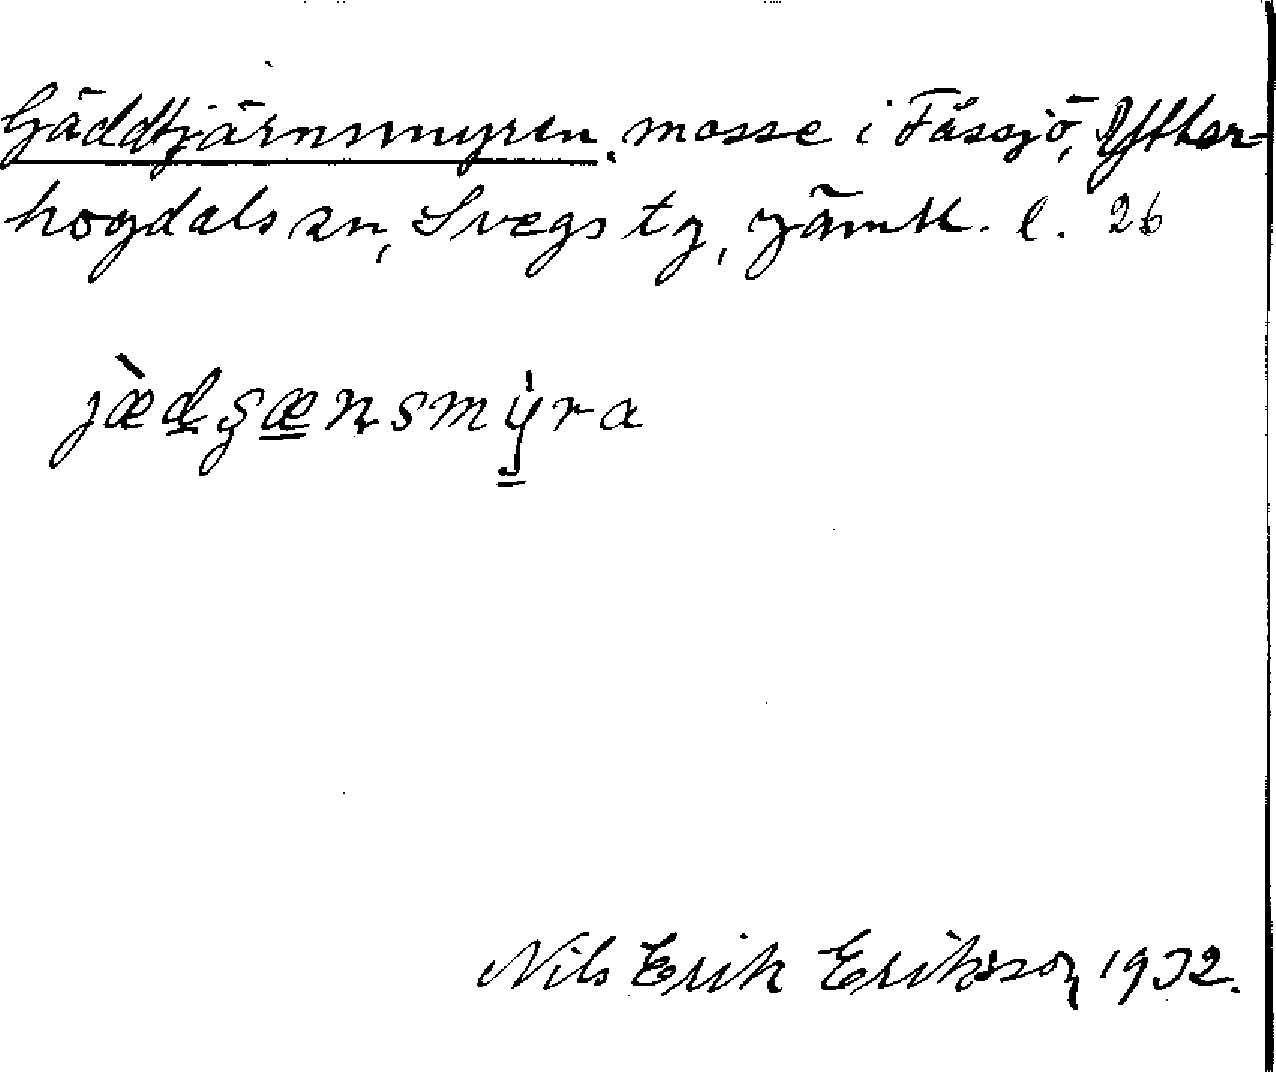 Gäddtjärnsmyren, mosse i Fåssjö, Ytter-
hogdals sn, Svegs tg, Jämtl. l. 26
jæ̀dʂænsmy̍ra
Nils Erik Eriksson 1932.